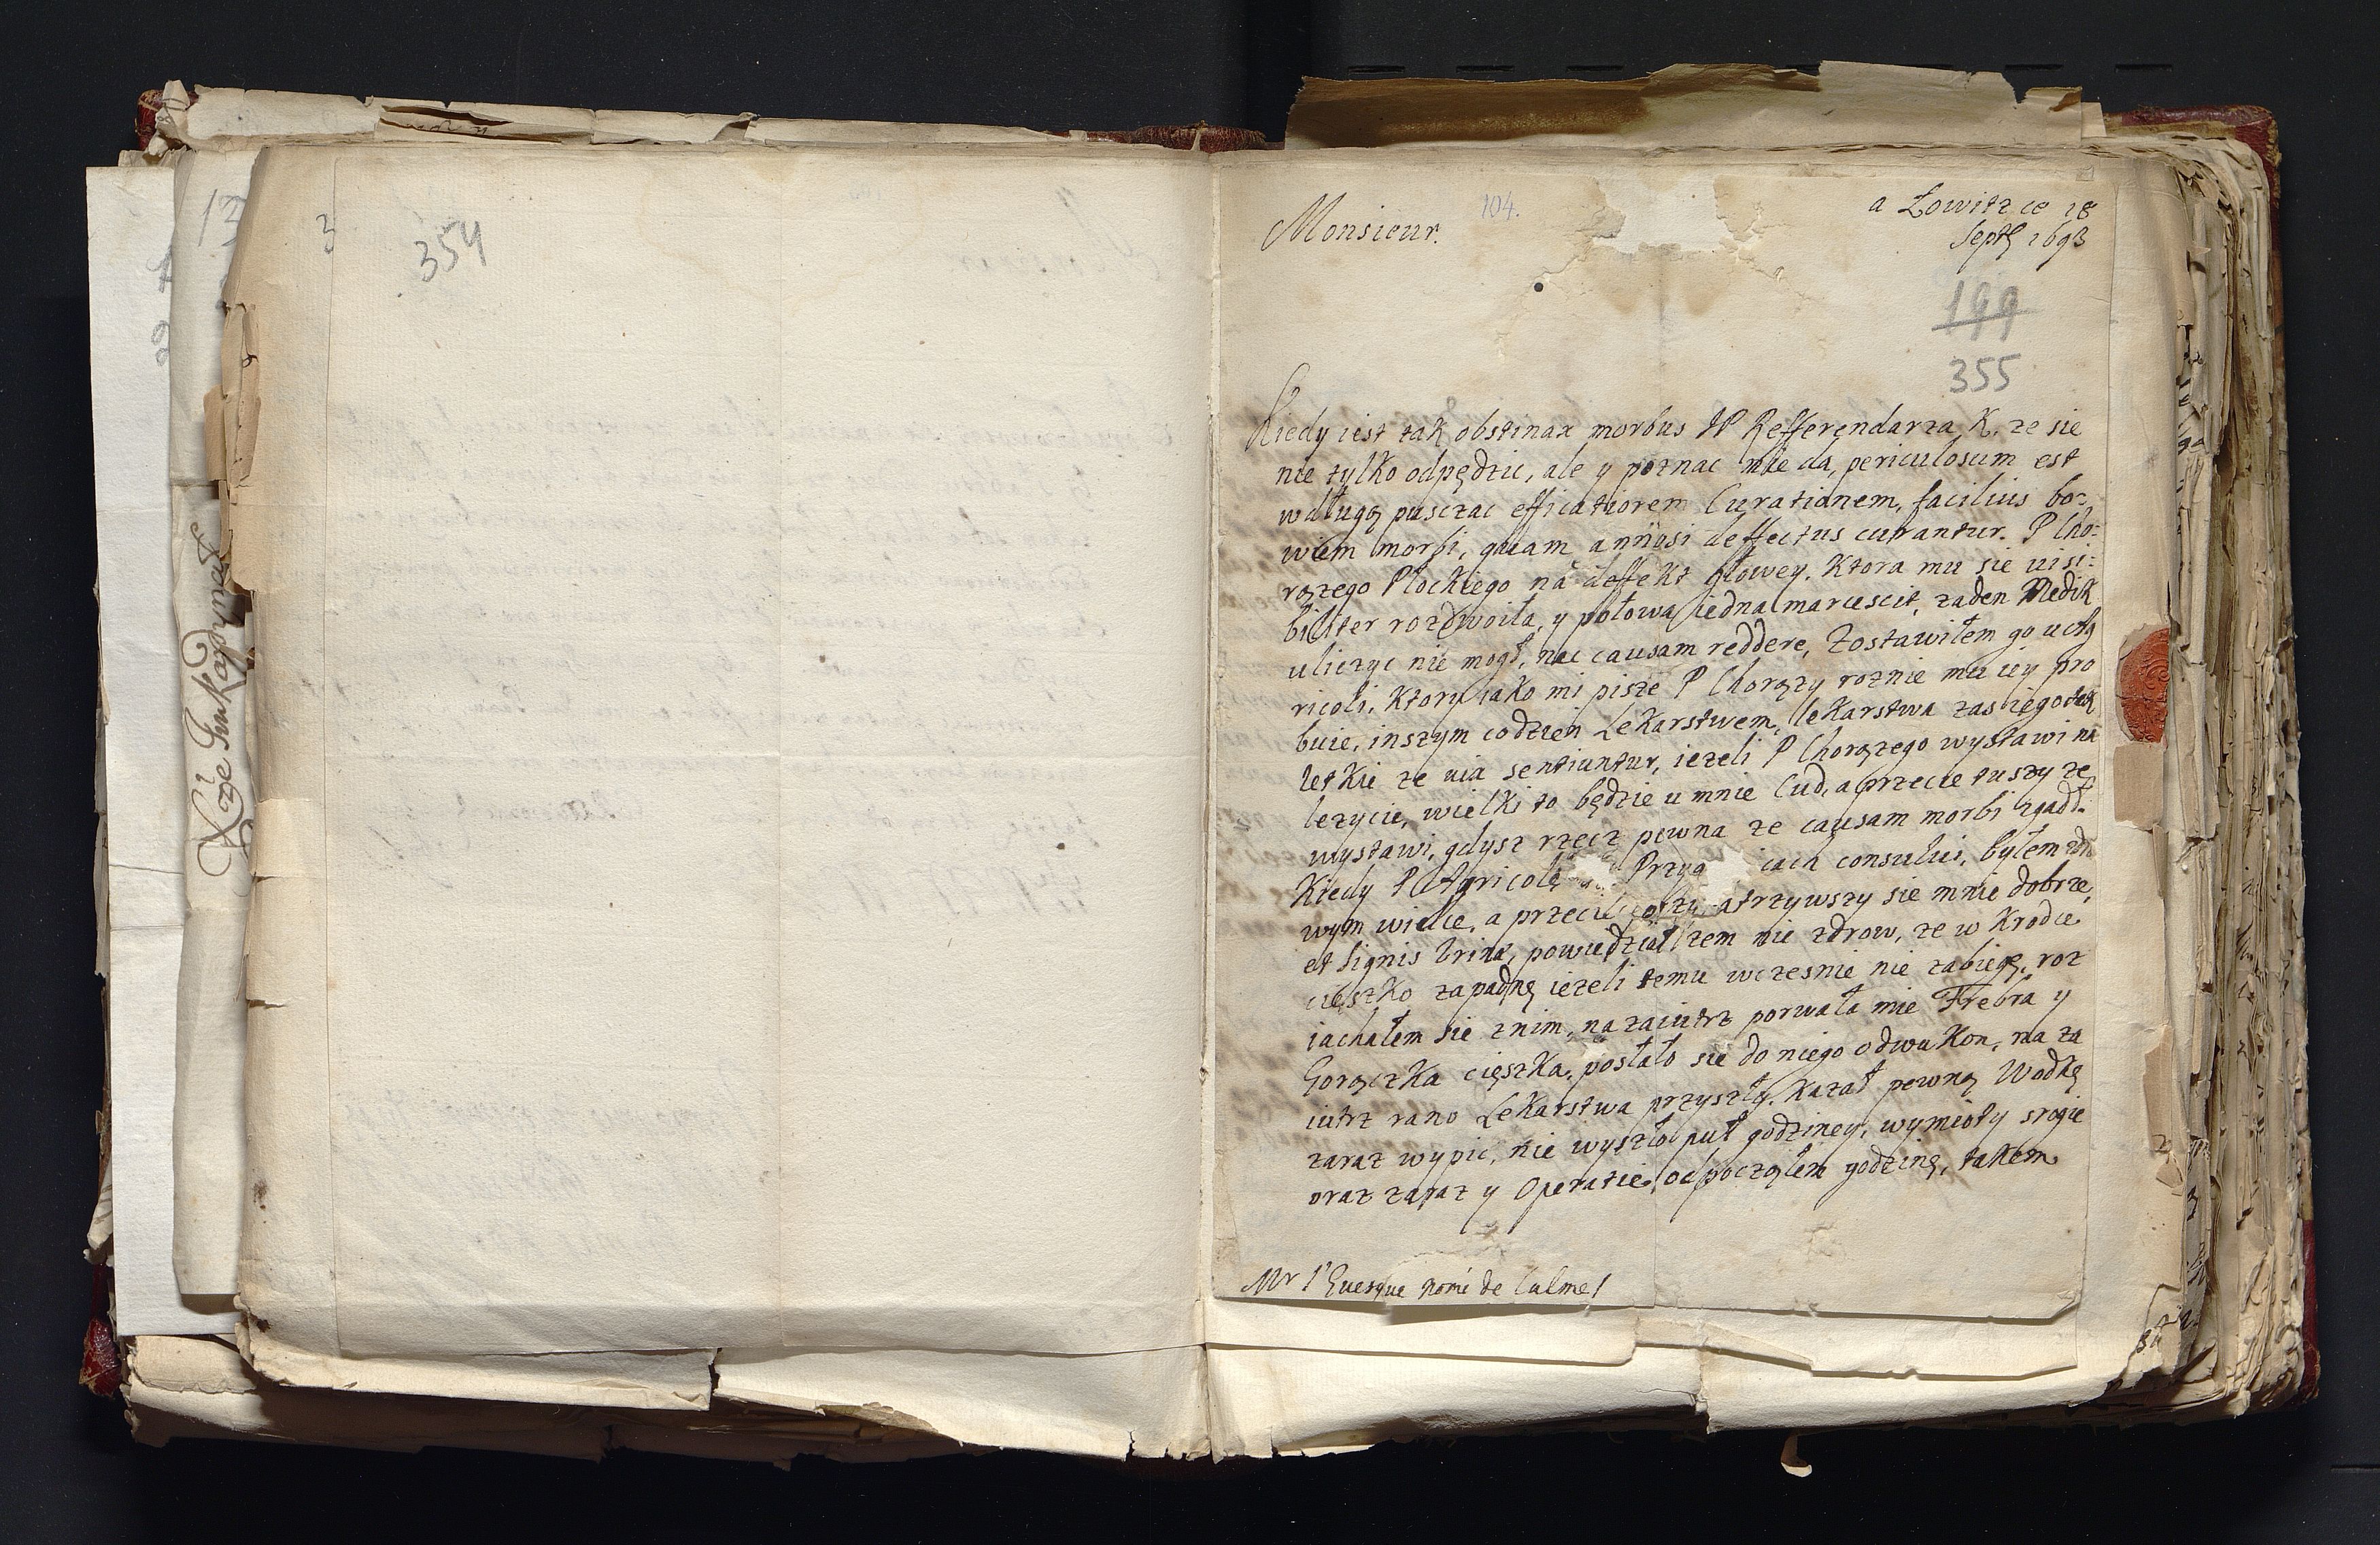 354
Monsieur.
104.
a Łowitz ce 18
Septb 1693
199
355
Kiedy iest tak obstinax morbus JP Refferendarza K. ze sie
nie tylko odpędzic, ale y poznac nie da, periculosum est
wdługą pusczac efficatiorem Curationem, facilius bo-
wiem morbi, quam annosi deffectus curantur. P Cho-
rążego Płockiego na deffekt głowey, Ktora mu sie visi-
biliter rozdwoiła, y połowa iedna marcescit, zaden Medik
uliczyc nie mogł, nec causam reddere, Zostawiłem go u Ag
ricoli, Ktory iako mi pisze P Chorąży roznie mu iey pro
buie, inszym codzien Lekarstwem, lekarstwa zas iego tak
letkie ze vix sentiuntur, iezeli P Chorążego wystawi na
lezycie, wielki to będzie u mnie Cud, a przecie tuszy ze
wystawi, gdysz rzecz pewna ze causam morbi zgadł.
Kiedy P Agricolę Przyg icach consului, byłem zdro
wym wielce, a przecie przypatrzywszy sie mnie dobrze,
et signis Vrinæ, powiedział zem nie zdrow, ze w Krodce
cięszko zapadnę iezeli temu wczesnie nie zabiegę, roz
iachałem sie znim, nazaiutrz porwała mie Frebra y
Gorączka cięszka, posłało sie do niego o dwu Kon, na za
iutrz rano Lekarstwa przyszły. Kazał pewną Wodkę
zaraz wypic, nie wyszło puł godziney, wymioty srogie
oraz zaraz y Operatie, odpocząłem godzinę, takem
Mr l'Evesque nomé de Culme